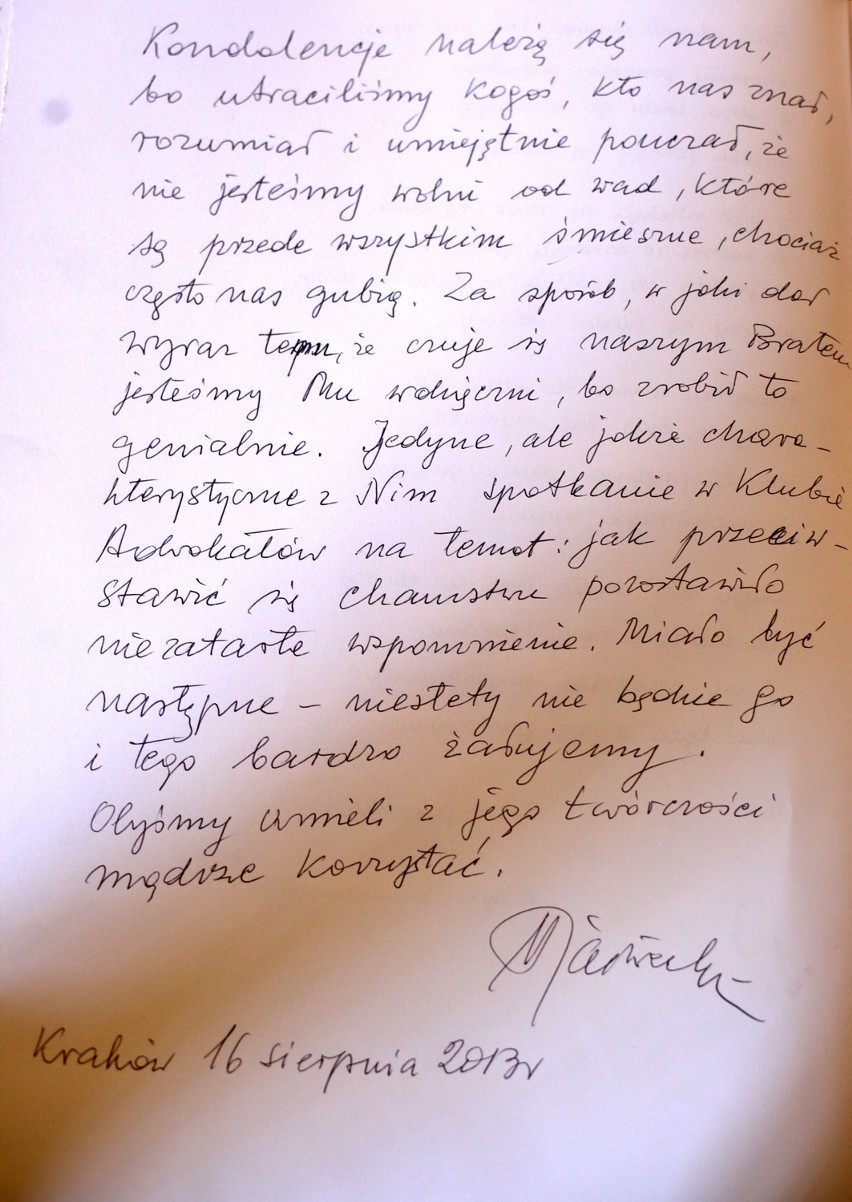 Kondolencje należą się nam,
bo utraciliśmy kogoś, kto nas znał,
rozumiał i umiejętnie pouczał, że
nie jesteśmy wolni od wad, które
są przede wszystkim śmieszne, chociaż
często nas gubią. Za sposób, w jaki dał
wyraz temu, że czuje się naszym Bratem
jesteśmy Mu wdzięczni, bo zrobił to
genialnie. Jedyne, ale jakże chara-
kterystyczne z Nim spotkanie w Klubie
Adwokatów na temat: jak przeciw-
stawić się chamstwu pozostawiło
niezatarte wspomnienie. Miało być
następne – niestety nie będzie go
i tego bardzo żałujemy.
Obyśmy umieli z jego twórczości
mądrze korzystać.
Kraków 16 sierpnia 2013r